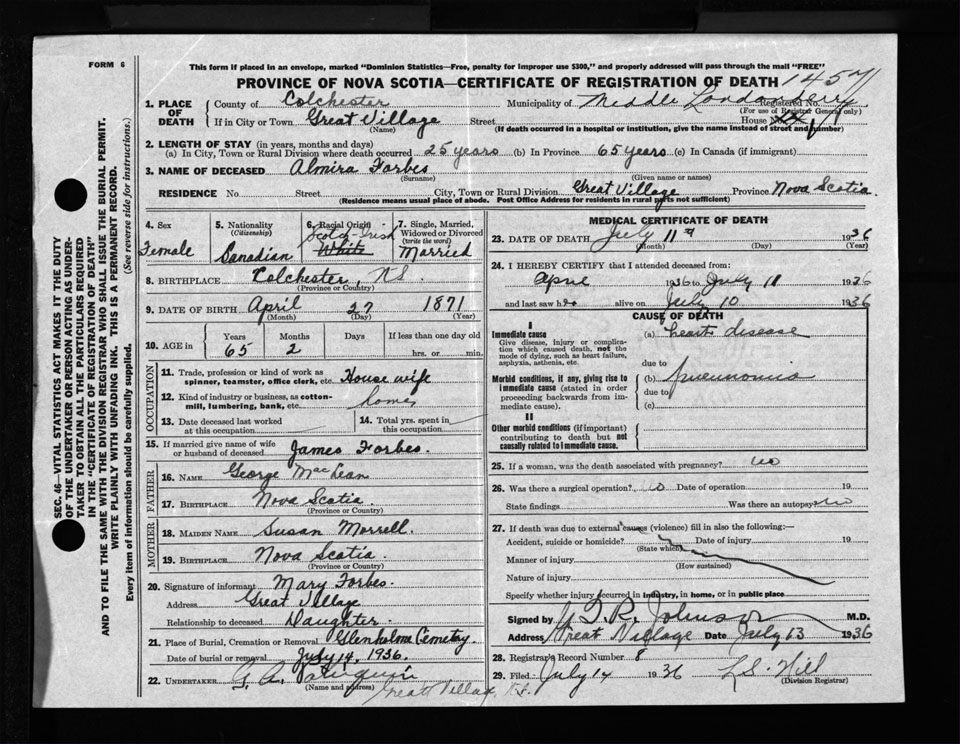 FORM 6
This form if placed in an envelope, marked "Dominion Statistics—Free, penalty for improper use $300," and properly addressed will pass through the mail "FREE"
PROVINCE OF NOVA SCOTIA—CERTIFICATE OF REGISTRATION OF DEATH 1457
1. PLACE OF DEATH
County of Colchester Municipality of Middle Londonderry Registered No.
(For use of Registrar General only)
If in City or Town Great Village Street House No.
(Name) (If death occurred in a hospital or institution, give the name instead of street and number)
2. LENGTH OF STAY (in years, months and days)
(a) In City, Town or Rural Division where death occurred 25 years (b) In Province 65 years (c) In Canada (if immigrant)
3. NAME OF DECEASED Almira Forbes
(Surname) (Given name or names)
RESIDENCE No Street City, Town or Rural Division Great Village Province Nova Scotia
(Residence means usual place of abode. Post Office Address for residents in rural parts not sufficient)
4. Sex Female
5. Nationality (Citizenship) Canadian
6. Racial Origin Scotch-Irish White
7. Single, Married, Widowed or Divorced (write the word) Married
8. BIRTHPLACE Colchester, NS
(Province or Country)
9. DATE OF BIRTH April 27 1871
(Month) (Day) (Year)
10. AGE in Years 65 Months 2 Days If less than one day old hrs. or min.
OCCUPATION
11. Trade, profession or kind of work as spinner, teamster, office clerk, etc. House wife
12. Kind of industry or business, as cotton-mill, lumbering, bank, etc. home
13. Date deceased last worked at this occupation
14. Total yrs. spent in this occupation
15. If married give name of wife or husband of deceased James Forbes.
FATHER
16. NAME George MacLean
17. BIRTHPLACE Nova Scotia.
(Province or Country)
MOTHER
18. MAIDEN NAME Susan Morrell.
19. BIRTHPLACE Nova Scotia.
(Province or Country)
20. Signature of informant Mary Forbes.
Address Great Village
Relationship to deceased Daughter.
21. Place of Burial, Cremation or Removal Glenholme Cemetery.
Date of burial or removal July 14, 1936.
22. UNDERTAKER G. A.
(Name and address) Great Village, N.S.
MEDICAL CERTIFICATE OF DEATH
23. DATE OF DEATH July 11th 1936
(Month) (Day) (Year)
24. I HEREBY CERTIFY that I attended deceased from:
April 1936 to July 11 1936
and last saw h alive on July 10 1936
CAUSE OF DEATH
I
Immediate cause (a) heart disease
Give disease, injury or complication which caused death, not the mode of dying, such as heart failure, asphyxia, asthenia, etc.
due to
Morbid conditions, if any, giving rise to immediate cause (stated in order proceeding backwards from immediate cause). (b) Pneumonia
due to
(c)
II
Other morbid conditions (if important) contributing to death but not causally related to immediate cause.
25. If a woman, was the death associated with pregnancy? no
26. Was there a surgical operation? Date of operation 19
State findings Was there an autopsy no
27. If death was due to external causes (violence) fill in also the following:—
Accident, suicide or homicide? Date of injury 19
(State which)
Manner of injury
(How sustained)
Nature of injury
Specify whether injury occurred in industry, in home, or in public place
Signed by T. R. Johnson M.D.
Address Great Village Date July 13 1936
28. Registrar's Record Number 8
29. Filed July 14 1936 L.S. Hill
(Division Registrar)
SEC. 46—VITAL STATISTICS ACT MAKES IT THE DUTY
OF THE UNDERTAKER OR PERSON ACTING AS UNDERTAKER
TO OBTAIN ALL THE PARTICULARS REQUIRED
IN THE "CERTIFICATE OF REGISTRATION OF DEATH"
AND TO FILE THE SAME WITH THE DIVISION REGISTRAR WHO SHALL ISSUE THE BURIAL PERMIT.
WRITE PLAINLY WITH UNFADING INK. THIS IS A PERMANENT RECORD.
Every item of information should be carefully supplied. (See reverse side for instructions.)